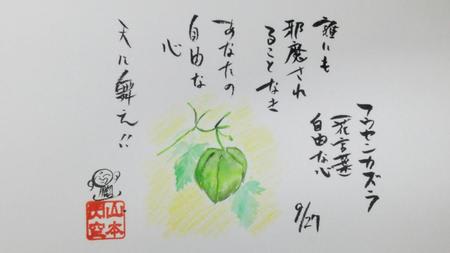 フウセンカズラ
(花言葉)
自由な心
9/27
誰にも
邪魔され
ることなき
あなたの
自由な
心
天に舞え!!
山本